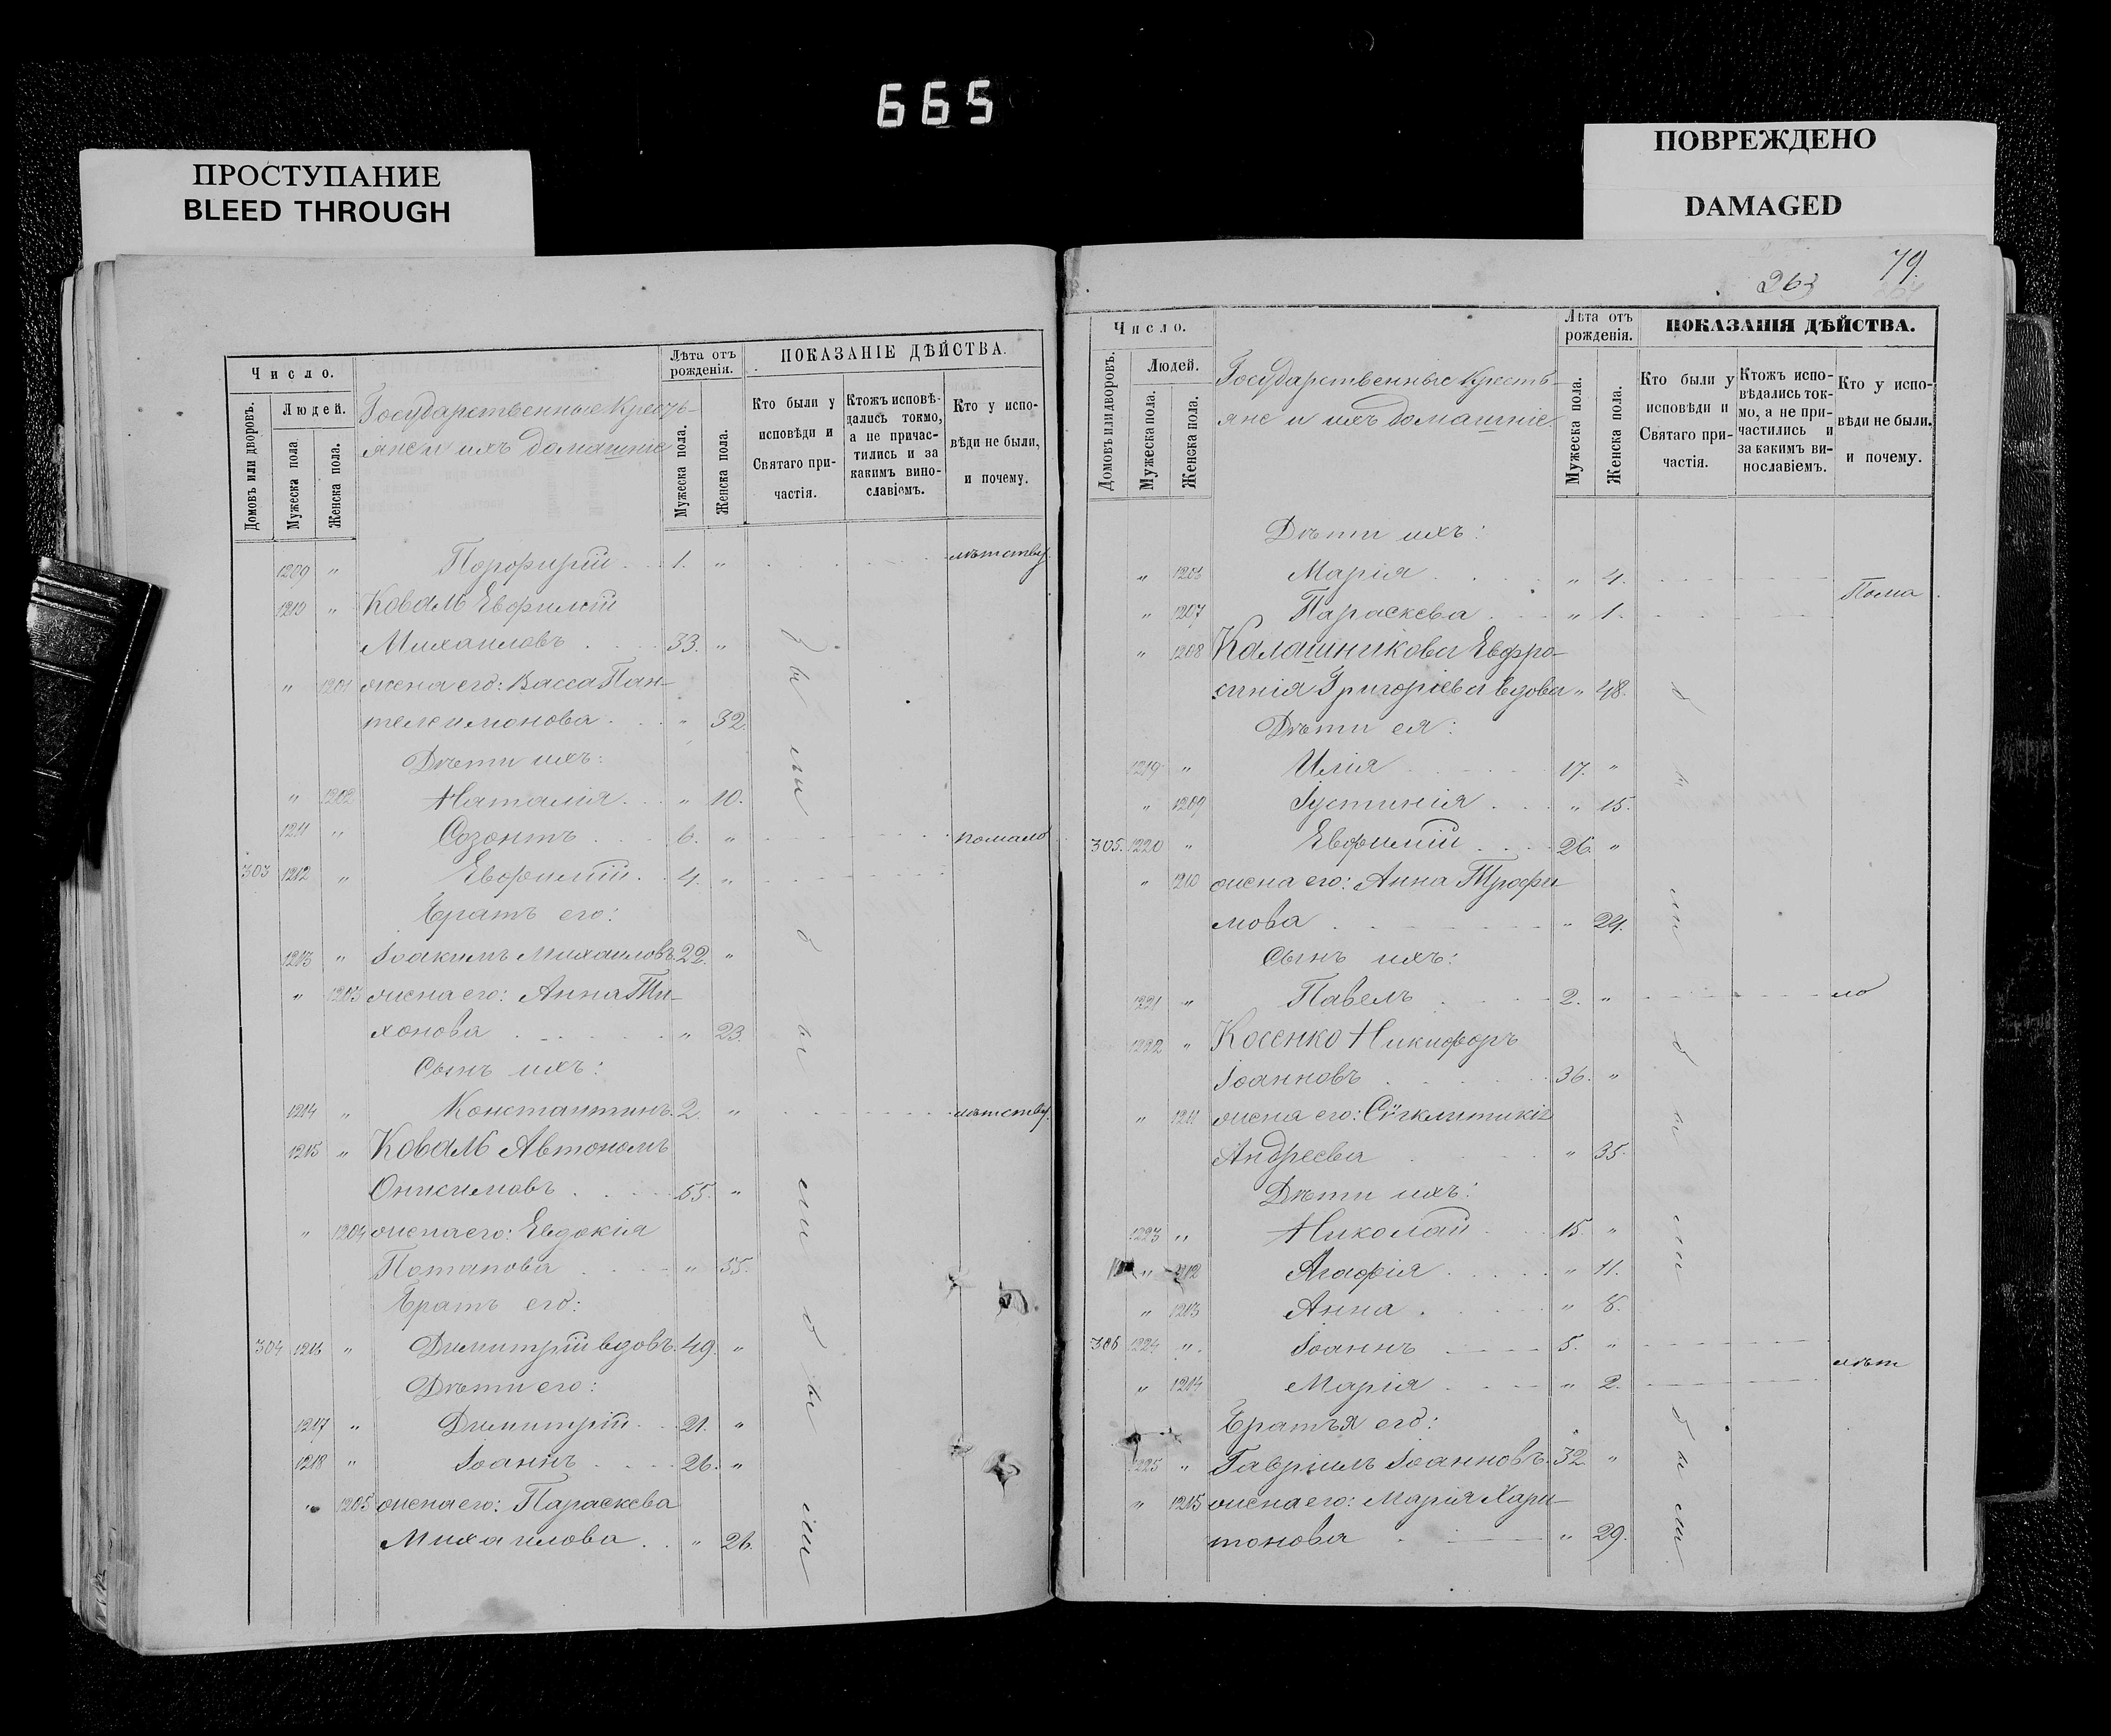 665
ПРОСТУПАНИЕ
BLEED THROUGH
ПОВРЕЖДЕНО
DAMAGED
Число.
Людей.
Домовъ или дворовъ.
Мужеска пола
Женска пола.
Государственные Кресть-
яне и ихъ домашніе
Лѣта отъ
рожденія.
Мужеска пола.
Женска пола.
ПОКАЗАНІЕ ДѢЙСТВА.
Кто были у
исповѣди и
Святаго при-
частія.
Ктожъ исповѣ-
дались токмо,
а не причас-
тились и за
какимъ вино-
славіемъ.
Кто у испо-
вѣди не были,
и почему.
1209 " Порфирій 1. " лѣтству.
1210 " Коваль Евфимій
Михаиловъ 33. "
" 1201 жена его: Васса Пан-
телеимонова " 32.
Дѣти ихъ:
" 1202 Наталія " 10.
1211 " Созонтъ 6. " помало
303 1212 " Евфимій 4. "
Братъ его:
1213 " Іоакимъ Михаиловъ 22. "
" 1203 жена его: Анна Ти-
хонова " 23.
Сынъ ихъ:
1214 " Константинъ 2. " лѣтству.
1215 " Коваль Автономъ
Онисимовъ 55. "
" 1204 жена его: Евдокія
Потапова " 55.
Братъ его:
304 1216 " Димитрій вдовъ 49. "
Дѣти его:
1217 " Димитрій 21. "
1218 " Іоаннъ 26. "
" 1205 жена его: Параскева
Михаилова " 26.
были
были
были
79.
263
Число.
Людей.
Домовъ или дворовъ.
Мужеска пола.
Женска пола.
Государственные Кресть-
яне и ихъ домашніе.
Лѣта отъ
рожденія.
Мужеска пола.
Женска пола.
ПОКАЗАНІЯ ДѢЙСТВА.
Кто были у
исповѣди и
Святаго при-
частія.
Ктожъ испо-
вѣдались ток-
мо, а не при-
частились и
за какимъ ви-
нославіемъ.
Кто у испо-
вѣди не были.
и почему.
Дѣти ихъ:
" 1206 Марія " 4.
Пома
" 1207 Параскева " 1.
" 1208 Калашникова Евфро-
синія Григоріева вдова " 48.
Дѣти ея:
1219 " Илія 17. "
" 1209 Іустинія " 15.
305. 1220 " Евфимій 26. "
" 1210 жена его: Анна Трофи
мова " 24.
Сынъ ихъ:
1221 " Павелъ 2. " ло
1222 " Косенко Никифоръ
Іоанновъ 36. "
" 1211 жена его: Сѵгклитикія
Андреева " 35.
Дѣти ихъ:
1223 " Николай 15. "
" 1212 Агафія " 11.
" 1213 Анна " 8.
306 1224 " Іоаннъ 5. "
лѣт
" 1214 Марія " 2.
Братья его:
1225 " Гавріилъ Іоанновъ 32. "
" 1215 жена его: Марія Хари-
тонова " 29.
были
были
были